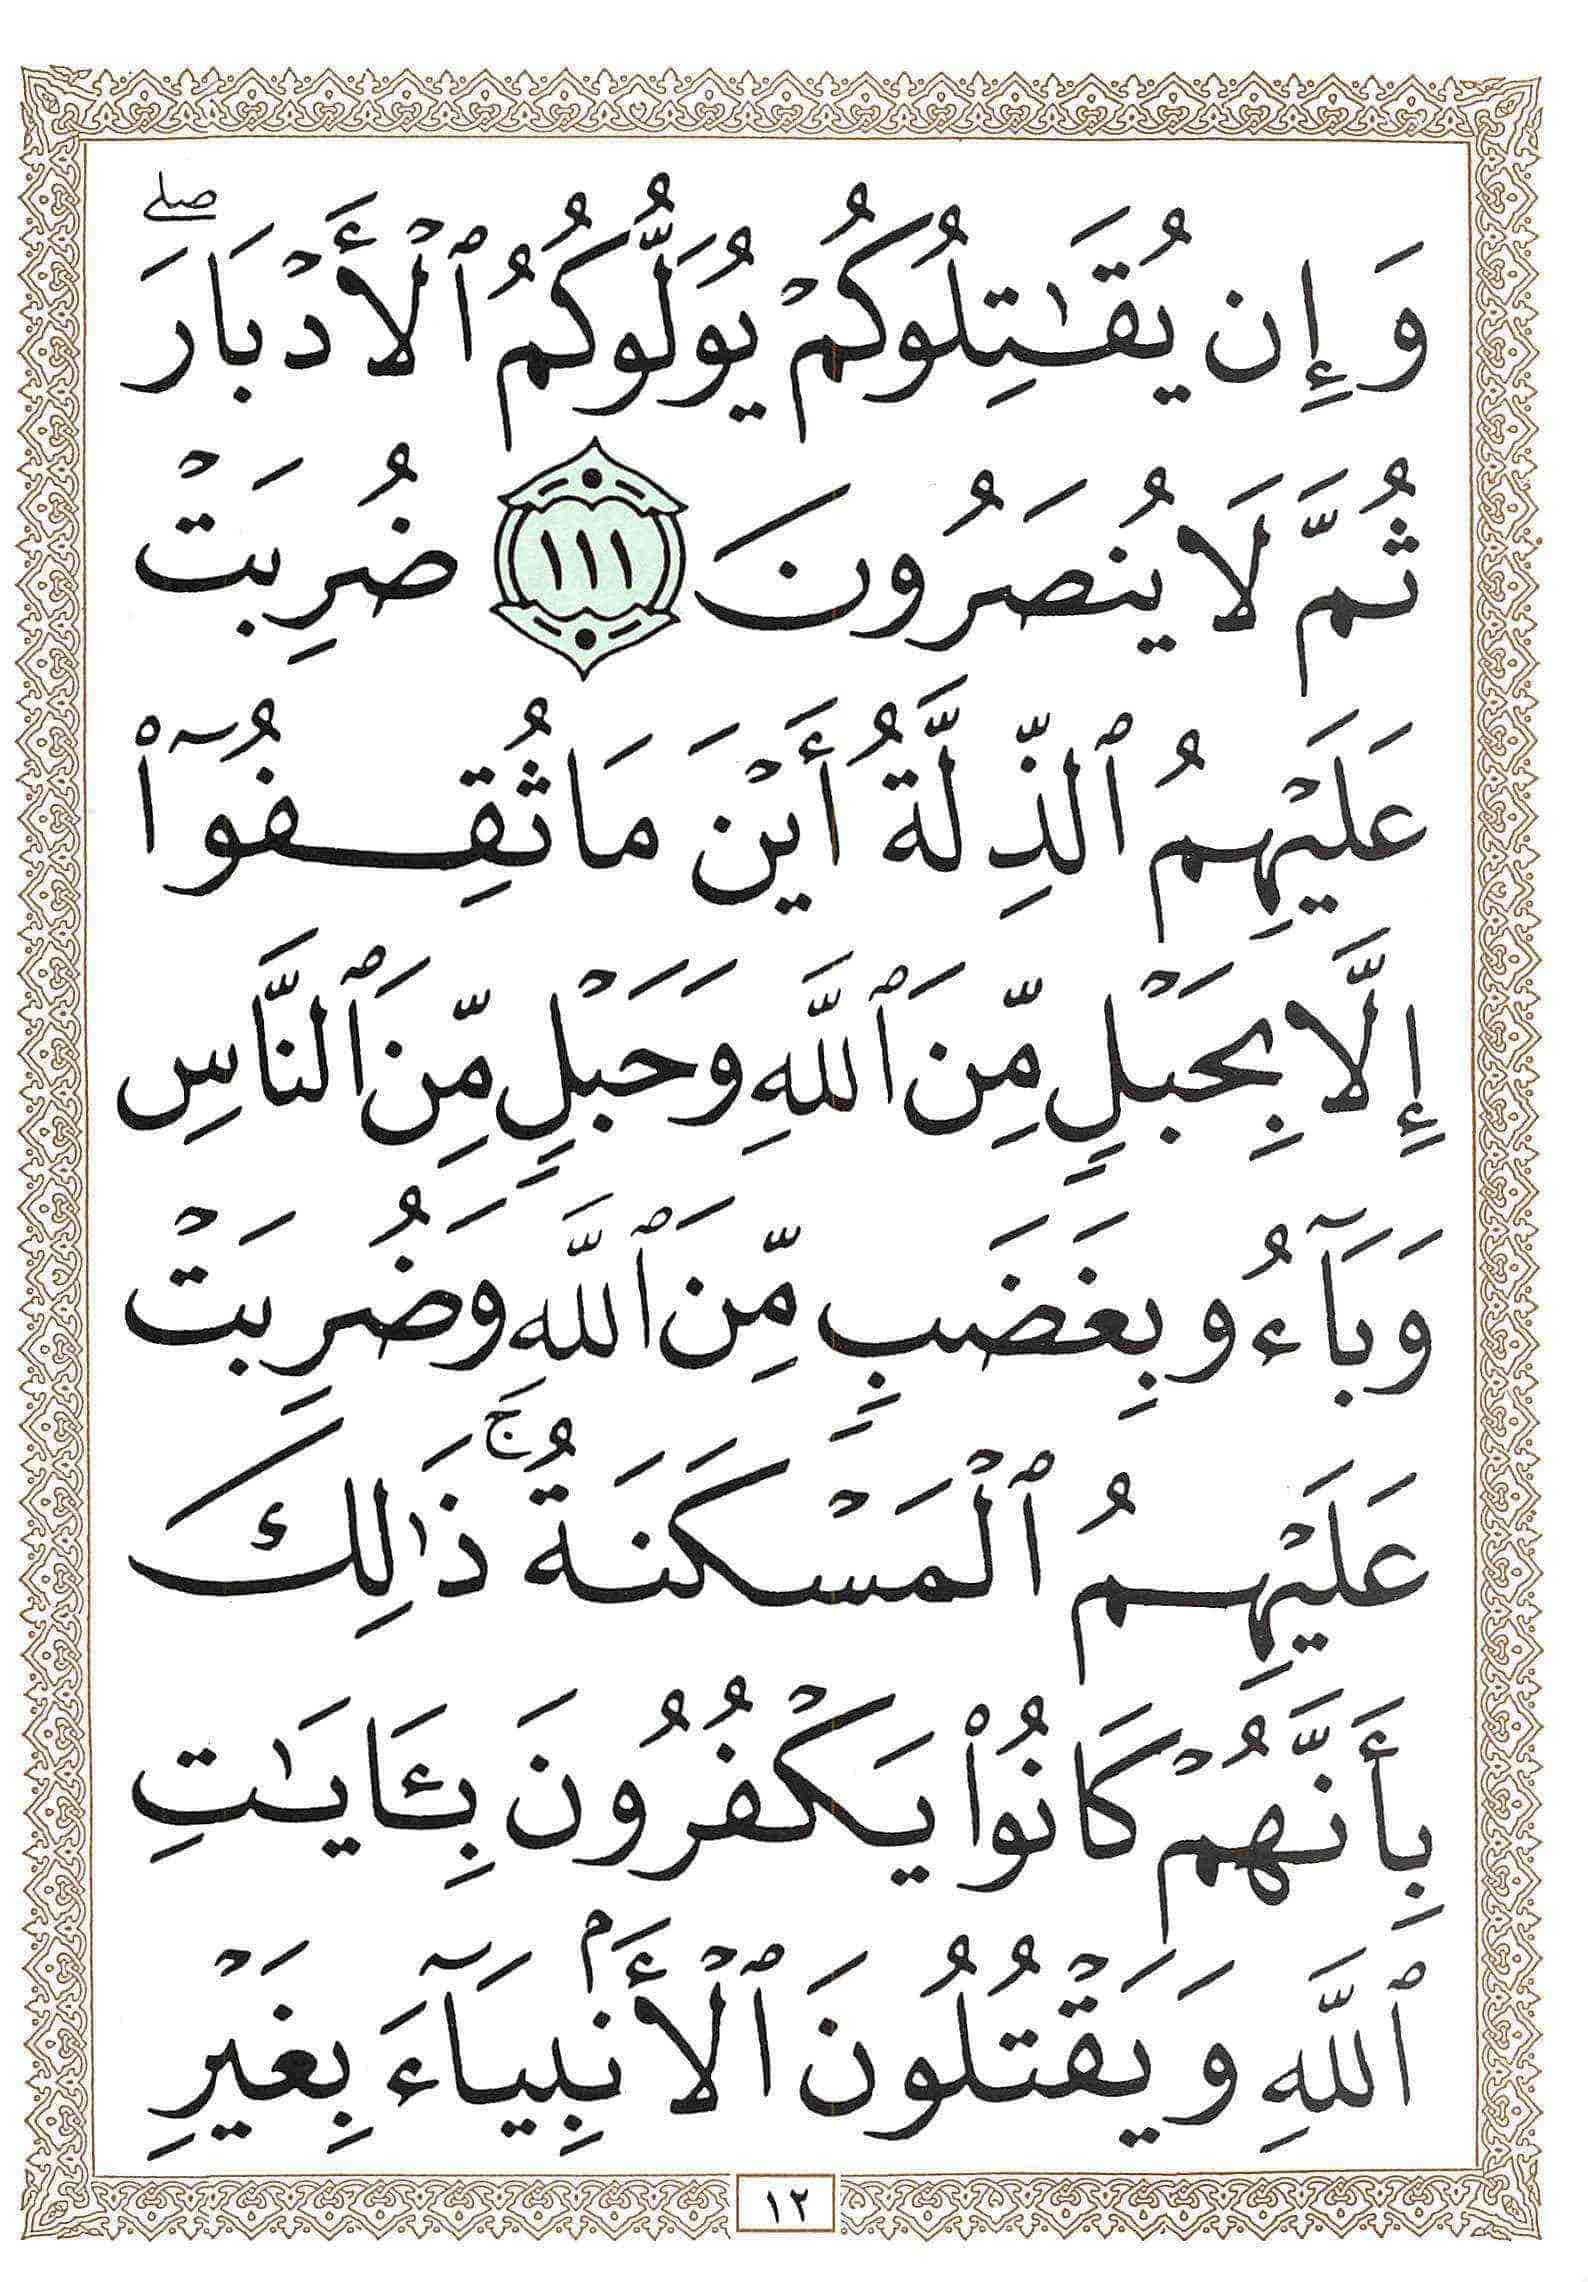 وَإِن يُقَٰتِلُوكُمْ يُوَلُّوكُمُ ٱلْأَدْبَارَ ۖ
ثُمَّ لَا يُنصَرُونَ ١١١ ضُرِبَتْ
عَلَيْهِمُ ٱلذِّلَّةُ أَيْنَ مَا ثُقِفُوٓا۟
إِلَّا بِحَبْلٍ مِّنَ ٱللَّهِ وَحَبْلٍ مِّنَ ٱلنَّاسِ
وَبَآءُو بِغَضَبٍ مِّنَ ٱللَّهِ وَضُرِبَتْ
عَلَيْهِمُ ٱلْمَسْكَنَةُ ۚ ذَٰلِكَ
بِأَنَّهُمْ كَانُوا۟ يَكْفُرُونَ بِـَٔايَٰتِ
ٱللَّهِ وَيَقْتُلُونَ ٱلْأَنۢبِيَآءَ بِغَيْرِ
١٢